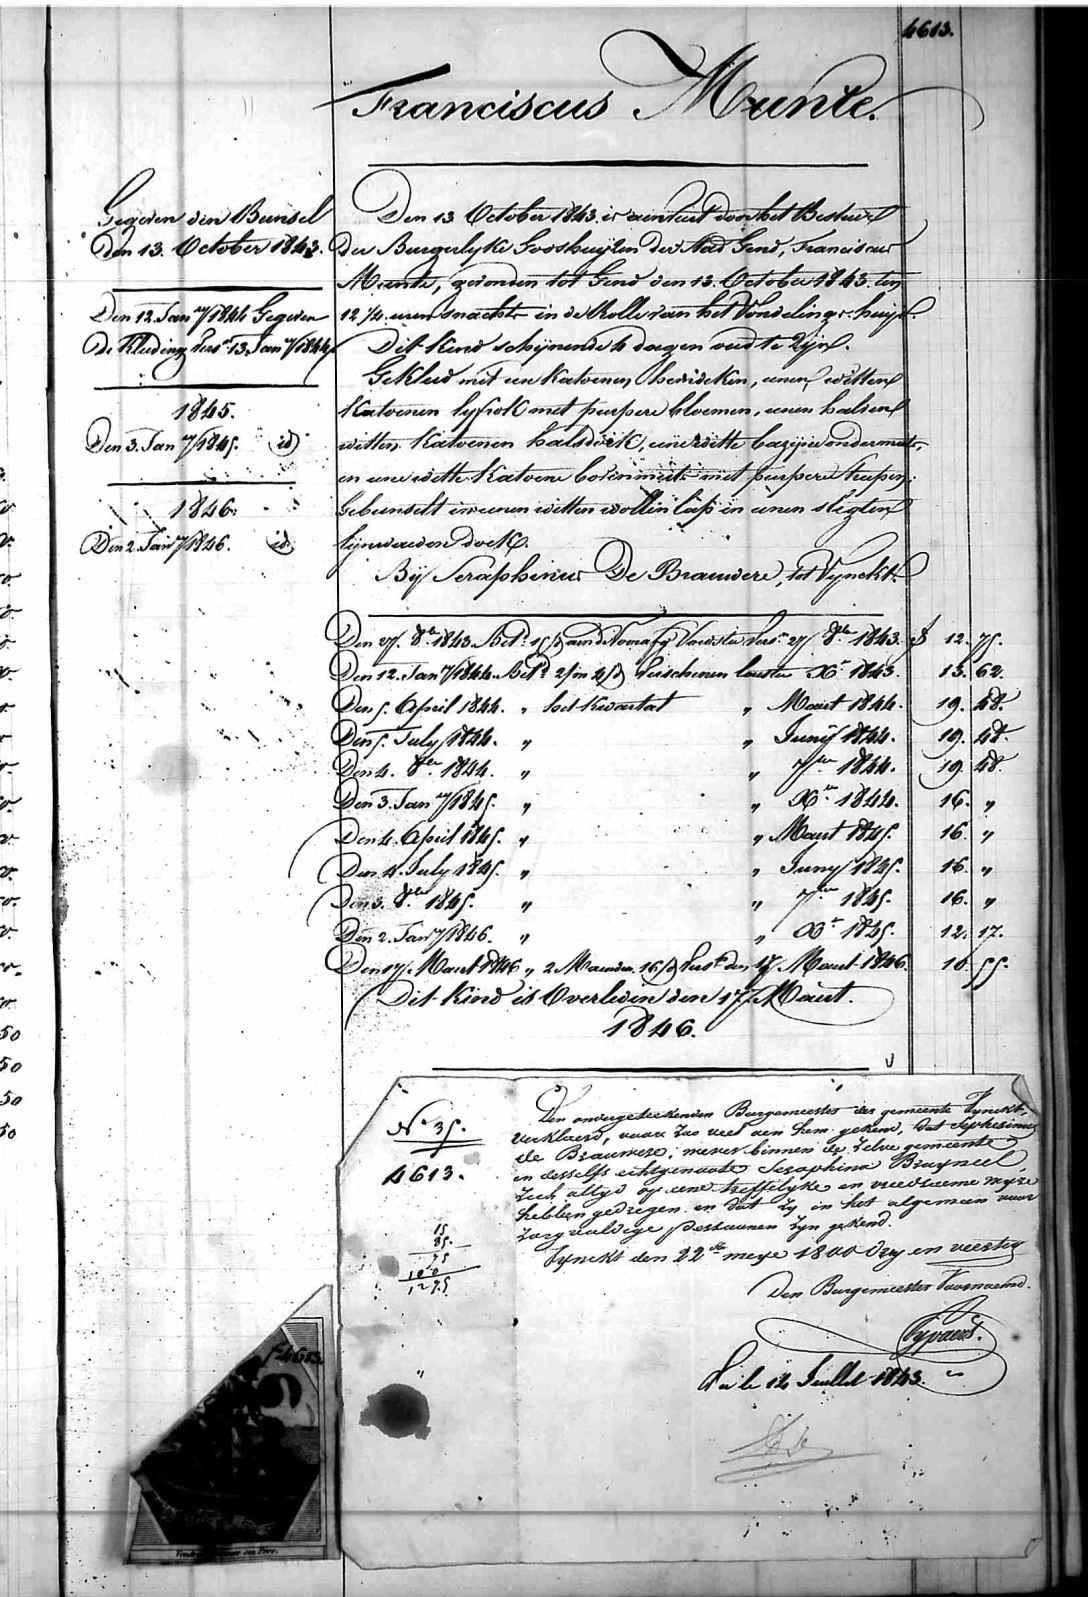 4613.
Franciscus Munte.
Gegeven den Bunsel
Den 13. October 1843.
Den 12. Jan.y 1844 Gegeven
De Kleeding vers.n 13. Jan.y 1844
1845.
Den 3. Jan.y 1845. id
1846.
Den 2. Jan.y 1846. id
Den 13 October 1843. is aenveert door het Bestuer
der Burgerlyke Godshuyzen der stad Gend, Franciscus
Munte, gevonden tot Gend den 13. October 1843. ten
12 1/4. uren snachts in de Rolle van het Vondelings-huys.
Dit Kind schynende 4 dagen oud te Zyn.
Gekleed met een Katoenen hemdeken, eenen witten
Katoenen lyfrok met purpere bloemen, eenen halven
witten Katoenen halsdoek, eene witte bazyne ondermuts,
en eene witte Katoene bovenmuts met purpere streepen.
Gebunselt in eenen witten wollen lap in eenen slegten
lynwaeden doek.
By Seraphinus De Brauwere, tot Vynckt.
Den 27. 8.bre 1843. Bet.d 15 d. aen de Voornaemde Voedster vers.n 27 8.bre 1843. f 12. 75.
Den 12. Jan.y 1844. Bet.d 2 m 4 d verschenen lausten X.r 1843. 13. 62.
Den 5. April 1844. " het Kwartael " Maert 1844. 19. 48.
Den 5. July 1844. " " Juny 1844. 19. 48.
Den 4. 8.bre 1844. " " 7.bre 1844. 19. 48.
Den 3. Jan.y 1845. " " X.bre 1844. 16. "
Den 4. April 1845. " " Maert 1845. 16. "
Den 4. July 1845. " " Juny 1845. 16. "
Den 3. 8.bre 1845. " " 7.bre 1845. 16. "
Den 2. Jan.y 1846. " " X.r 1845. 12. 17.
Den 17. Maert 1846 " 2 Maenden 16 d vers.n den 17 Maert 1846. 10 55.
Dit Kind is Overleden den 17 Maert.
1846.
N.o 35.
4613.
15
85.
75
100
1275
Den ondergeteekenden Burgemeester der gemeente Vynckt,
verklaerd, voor zoo veel aen hem gekend, dat Sephirinus
de Brauwere, wever binnen de zelve gemeente
en desselfs echtgenoote Seraphina Bruyneel,
zich altyd op eene treffelyke en vreedzaeme wyze
hebben gedregen en dat zy in het algemeen voor
zorgvuldige persoonen zyn gekend.
Vynckt den 22.de meye 1800 dry en veertig
Den Burgemeester Voornoemd.
Vu le 12 Juillet 1843.
F.o 4613.
50
50
50
50